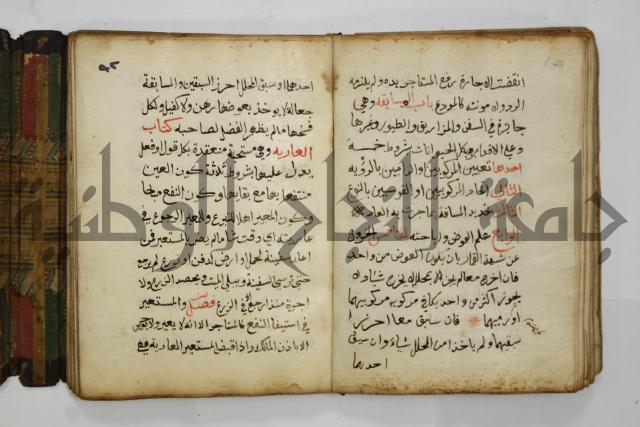 انقضت الاجارة رفع المستاجر يده ولم يلزمه
الرد ومونته كالمودع باب المسابقة وهي
جائزة في السفن والمزاريق والطيور وغيرها
وعلى الاقدام وكل الحيوانات بشروط خمسة
احدها تعيين المركوبين والراميين بالرؤية
الثاني اتحاد المركوبين او القوسين بالنوع
الثالث تحديد المسافة بما جرت به العادة
الرابع علم العوض واباحته الخامس الخروج
عن شبهة القمار بان يكون العوض من واحد
فان اخرجا معا لم يجز الا بمحلل لا يخرج شيئا ولا
يجوز اكثر من واحد يكافئ مركوبه مركوبيهما
او رميهما فان سبقا معا احرزا
سبقيهما ولم ياخذا من المحلل شيئا وان سبق
احدهما
احدهما او سبق المحلل احرز السبقين والمسابقة
جعالة لا يوخذ بعوضها رهن ولا كفيل ولكل
فسخها ما لم يظهر الفضل لصاحبه كتاب
العارية وهي مستحبة منعقدة بكل قول او فعل
يدل عليها بشروط ثلاثة كون العين
منتفعا بها مع بقائها وكون النفع مباحا
وكون المعير اهلا للتبرع وللمعير الرجوع في
عاريته اي وقت شا ما لم يضر بالمستعير فمن
اعار سفينة لحمل او ارض لدفن او زرع لم يرجع
حتى ترسي السفينة ويبلى الميت ويحصد الزرع ولا
اجرة منذ رجع الا في الزرع فصل والمستعير
في استيفا النفع كالمستاجر الا انه لا يعير ولا يوجر
الا باذن المالك واذا قبض المستعير العارية فهي
جامعة النجاح الوطنية